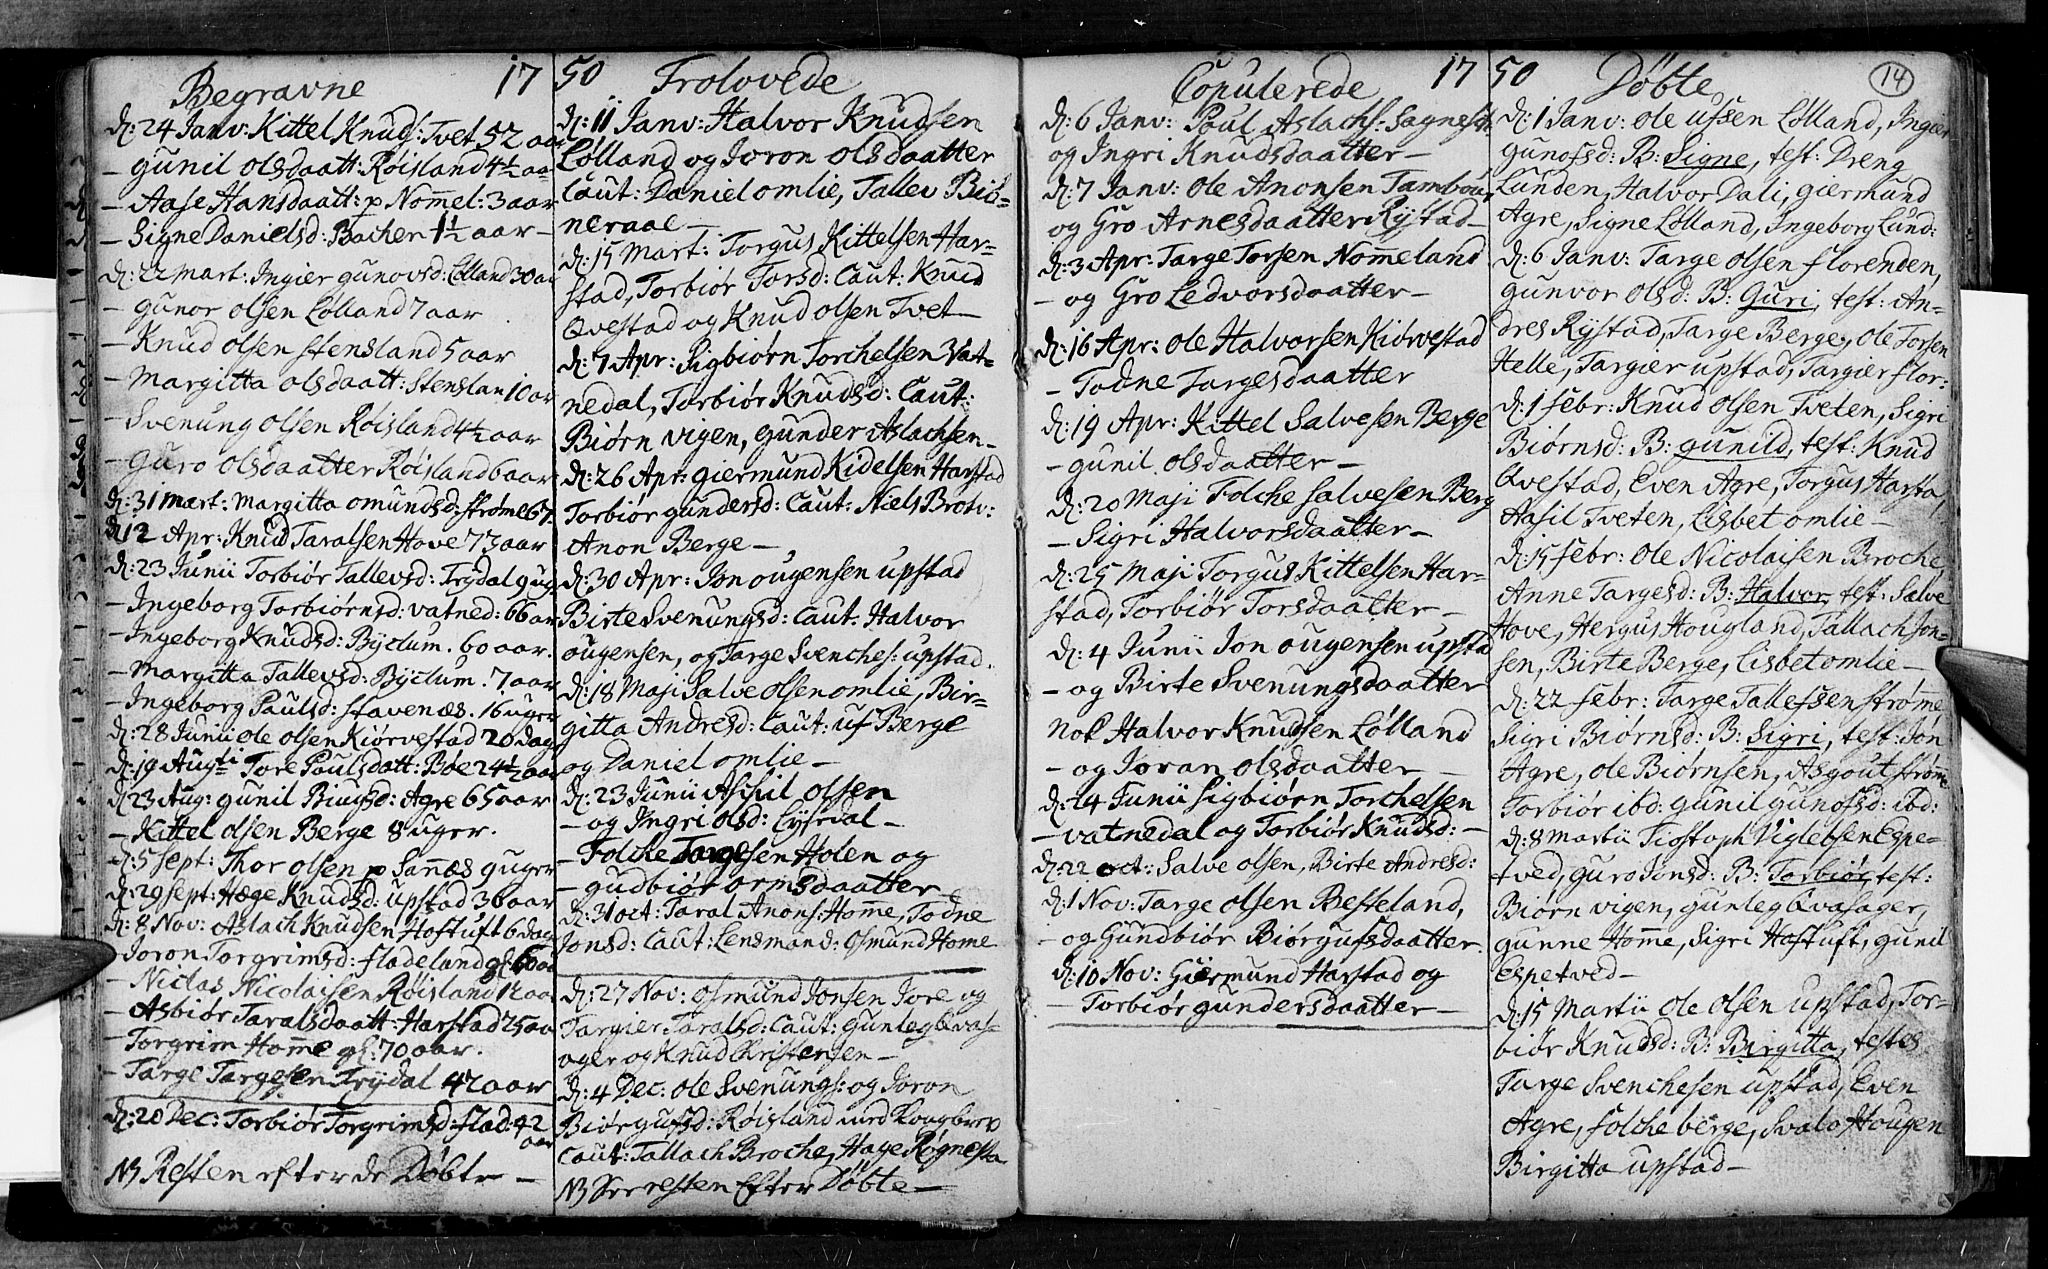 Begravne 17
d: 24 Janv: Kittel Knuds: Tvet 52 aar
- gunil olsdaatt: Røisland 4½ aar
- Aase Hansdaatt: p Nom̅el: 3 aar
- Signe Danielsd: Bachen 1½ aar -
d: 22 mart: Ingier gunovsd: Lølland 30 aar
- gunor olsen Lølland 7 aar
- Knud olsen stensland 5 aar
- Margitta olsdaatt: Stenslan 10 aar
- Svenung olsen Røisland 4½ aar
- Guro olsdaatter Røisland 6 aar
d: 31 mart: margitta omundsd: strøme 67.
d 12 Apr: Knud Taralsen Hove 73 aar
d: 23 Junii Torbiør Tallevsd: Trydal 9 ug:
- Ingeborg Torbiørnsd: vatned: 66 aar
- Ingeborg Knudsd: Byclum. 60 aar.
- Margitta Tallevsd: Byclum. 7 aar
- Ingeborg Paulsd: stavenæs. 16 uger
d: 28 Junii ole olsen Kiørvestad 20 dag
d: 19 Augti Tore Paulsdatt: Boe 24½ aar
d 23 Aug: gunil Biugsd: Agre 65 aar
- Kittel olsen Berge 8 uger.
d: 5 sept: Thor olsen p San̅æs 9 uger
d: 29 sept: Hæge Knudsd: upstad 36 aar
d: 8 Nov: Aslach Knudsen Hoftuft 6 dag
- Joron Torgrimsd: fladeland gl: 60 aar
- Niclas Nicolaisen Røisland 12 aar
- Asbiør Taralsdaatt: Harstad 25 aar
- Torgrim Hom̅e gl: 70 aar.
- Targe Targesen Trydal 42 aar
d: 20 Dec: Torbiør Torgrimsd: flad: 42
aar
NB Resten efter de Døbte -
50 Trolovede
d: 11 Janv: Halvor Knudsen
Lølland og Joron olsdaatter
Caut: Daniel omlie, Tallev Biø-
neraae -
d: 15 Mart: Torgus Kittelsen Har-
stad, Torbiør Torsd: Caut: Knud
Qvestad og Knud olsen Tvet -
d: 7 Apr: Sigbiørn Torchelsen Vat-
nedal, Torbiør Knudsd: Caut:
Biørn vigen, gunder Aslachsen -
d: 26 Apr: giermund Kidelsen Harstad
Torbiør gundersd: Caut: Niels Brotv:
Anon Berge -
d: 30 Apr: Jon ougensen upstad
Birte Svenungsd: Caut: Halvor
ougensen, og Targe Svenches: upstad.
d: 18 Maji Salve olsen omlie, Bir-
gitta Andresd: Caut: uf Berge
og Daniel omlie -
d: 23 Junii Aschil olsen
- og Ingri olsd: Lysedal -
- Folche Targesen Holen og
- gudbiør ormsdaatter -
d: 31 oct: Taral Anons: Hom̅e, Todne
Jonsd: Caut: Lensmand: Osmund Home
d: 27 Nov: osmund Jonsen Jore og
Targier Taralsd: Caut: gunleg Qvas-
ager og Knud Christensen -
d: 4 Dec: ole Svenungs: og Joron
Biørgufsd: Røisland med Kongbrev
Caut: Tallach Broche, Hage Røgnesta
NB See resten Efter Døbte -
Copulerede 17
d: 6 Janv: Poul Aslachs: Sagneskar
og Ingri Knudsdaatter -
d: 7 Janv: ole Anonsen Tambour
og Gro Arnesdaatter Rystad -
d: 3 Apr: Targe Torsen Nom̅eland
- og Gro Ledvorsdaatter -
d: 16 Apr: ole Halvorsen Kiørvestad
- Todne Targesdaatter
d: 19 Apr: Kittel Salvesen Berge
- gunil olsdaatter -
d: 20 Maji Folche salvesen Berg
- Sigri Halvorsdaatter -
d: 25 Maji Torgus Kittelsen Har-
stad, Torbiør Torsdaatter -
d: 4 Junii Jon ougensen upstad
- og Birte Svenungsdaatter
nok Halvor Knudsen Lølland
- og Joran olsdaatter -
d: 14 Junii Sigbiørn Torchelsen
- vatnedal og Torbiør Knudsd: -
d: 22 oct: Salve olsen, Birte Andresd:
d: 1 Nov: Targe olsen Besteland,
- og Gundbiør Biørgufsdaatter.
d: 10 Nov: Giermund Harstad og
- Torbiør gundersdaatter -
50 Døbte 14
d: 1 Janv: ole ufsen Lølland, Ingier
gunofsd: B: Signe, test: Dreng
Lunden, Halvor Dali, giermund
Agre, Signe Lølland, Ingeborg Lund:
d: 6 Janv: Targe olsen florenden,
gunvor olsd: B: Guri, test: An-
dres Rystad, Targe Berge, ole Torsen
Helle, Targier upstad, Targier flor:
d: 1 febr: Knud olsen Tveten, Sigri
Biørnsd: B: gunild, test: Knud
Qvestad, Even Agre, Torgus Harsta,
Aasil Tveten, Lisbet omlie -
d: 15 febr: ole Nicolaisen Broche
Anne Targesd: B: Halvor, test: Salve
Hove, Hergus Hougland, Tallach Jon-
sen, Birte Berge, Lisbet omlie -
d: 22 febr: Targe Tallefsen strøm̅e
Sigri Biørnsd: B: Sigri, test: Jon
Agre, ole Biørnsen, Asgout strøm̅e
Torbiør ibd: gunil gunofsd: ibd:
d: 8 Martii Tiostoph Viglebsen Espe-
tved, guro Jonsd: B: Torbiør, test:
Biørn vigen, gunleg Qvasager,
gunne Hom̅e, Sigri Hoftuft, gunil
Espetved -
d: 15 Martii ole olsen upstad, Tor-
biør Knudsd: B: Birgitta, testes
Targe Svenchesen upstad, Even
Agre, folche berge, Svalo Hougen
Birgitta upstad -